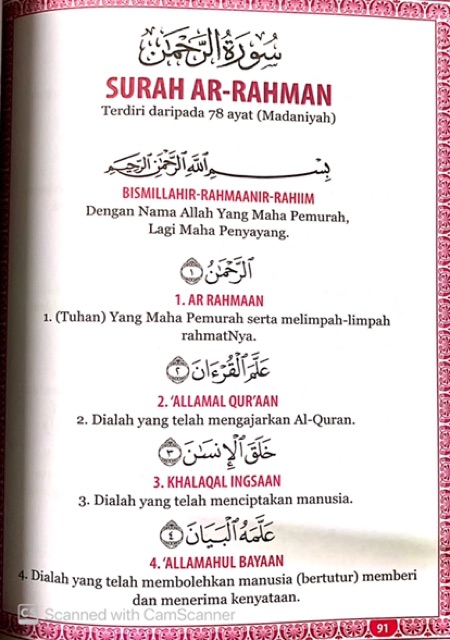 سُورَةُ الرَّحْمَٰن
SURAH AR-RAHMAN
Terdiri daripada 78 ayat (Madaniyah)
بِسْمِ اللَّهِ الرَّحْمَٰنِ الرَّحِيمِ
BISMILLAHIR-RAHMAANIR-RAHIIM
Dengan Nama Allah Yang Maha Pemurah,
Lagi Maha Penyayang.
الرَّحْمَٰنُ ١
1. AR RAHMAAN
1. (Tuhan) Yang Maha Pemurah serta melimpah-limpah
rahmatNya.
عَلَّمَ الْقُرْءَانَ ٢
2. ‘ALLAMAL QUR’AAN
2. Dialah yang telah mengajarkan Al-Quran.
خَلَقَ الْإِنسَٰنَ ٣
3. KHALAQAL INGSAAN
3. Dialah yang telah menciptakan manusia.
عَلَّمَهُ الْبَيَانَ ٤
4. ‘ALLAMAHUL BAYAAN
4. Dialah yang telah membolehkan manusia (bertutur) memberi
dan menerima kenyataan.
CS Scanned with CamScanner
91